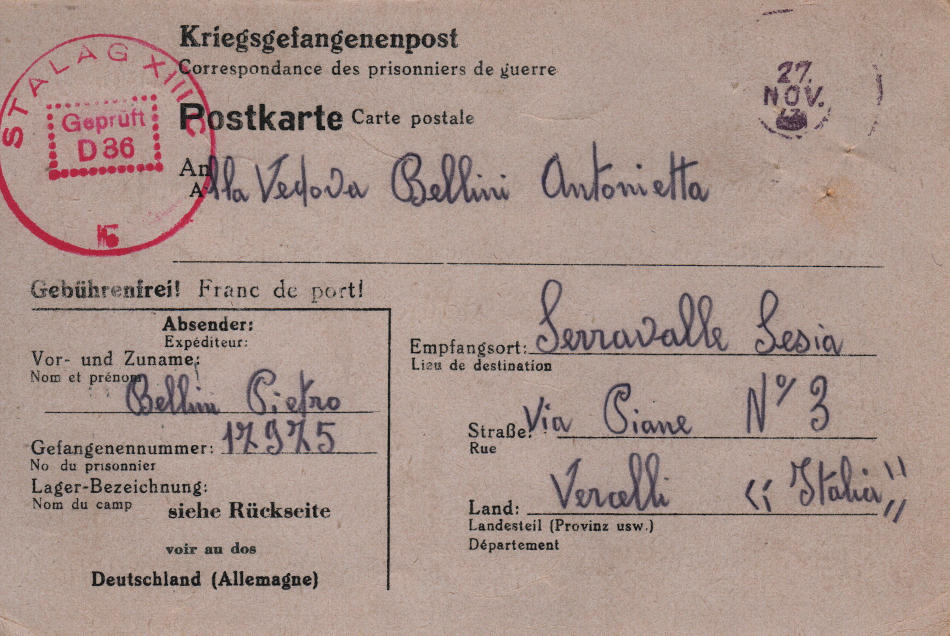 Kriegsgefangenenpost
Correspondance des prisonniers de guerre
STALAG XIII C
Geprüft
D 36
27.
NOV.
Postkarte Carte postale
An
A
Alla Vedova Bellini Antonietta
Gebührenfrei! Franc de port!
Absender:
Expéditeur:
Vor- und Zuname:
Nom et prénom
Bellini Pietro
Gefangenennummer: 17975
No du prisonnier
Lager-Bezeichnung:
Nom du camp
siehe Rückseite
voir au dos
Deutschland (Allemagne)
Empfangsort: Serravalle Sesia
Lieu de destination
Straße: Via Piane Nº 3
Rue
Land: Vercelli "Italia"
Landesteil (Provinz usw.)
Département